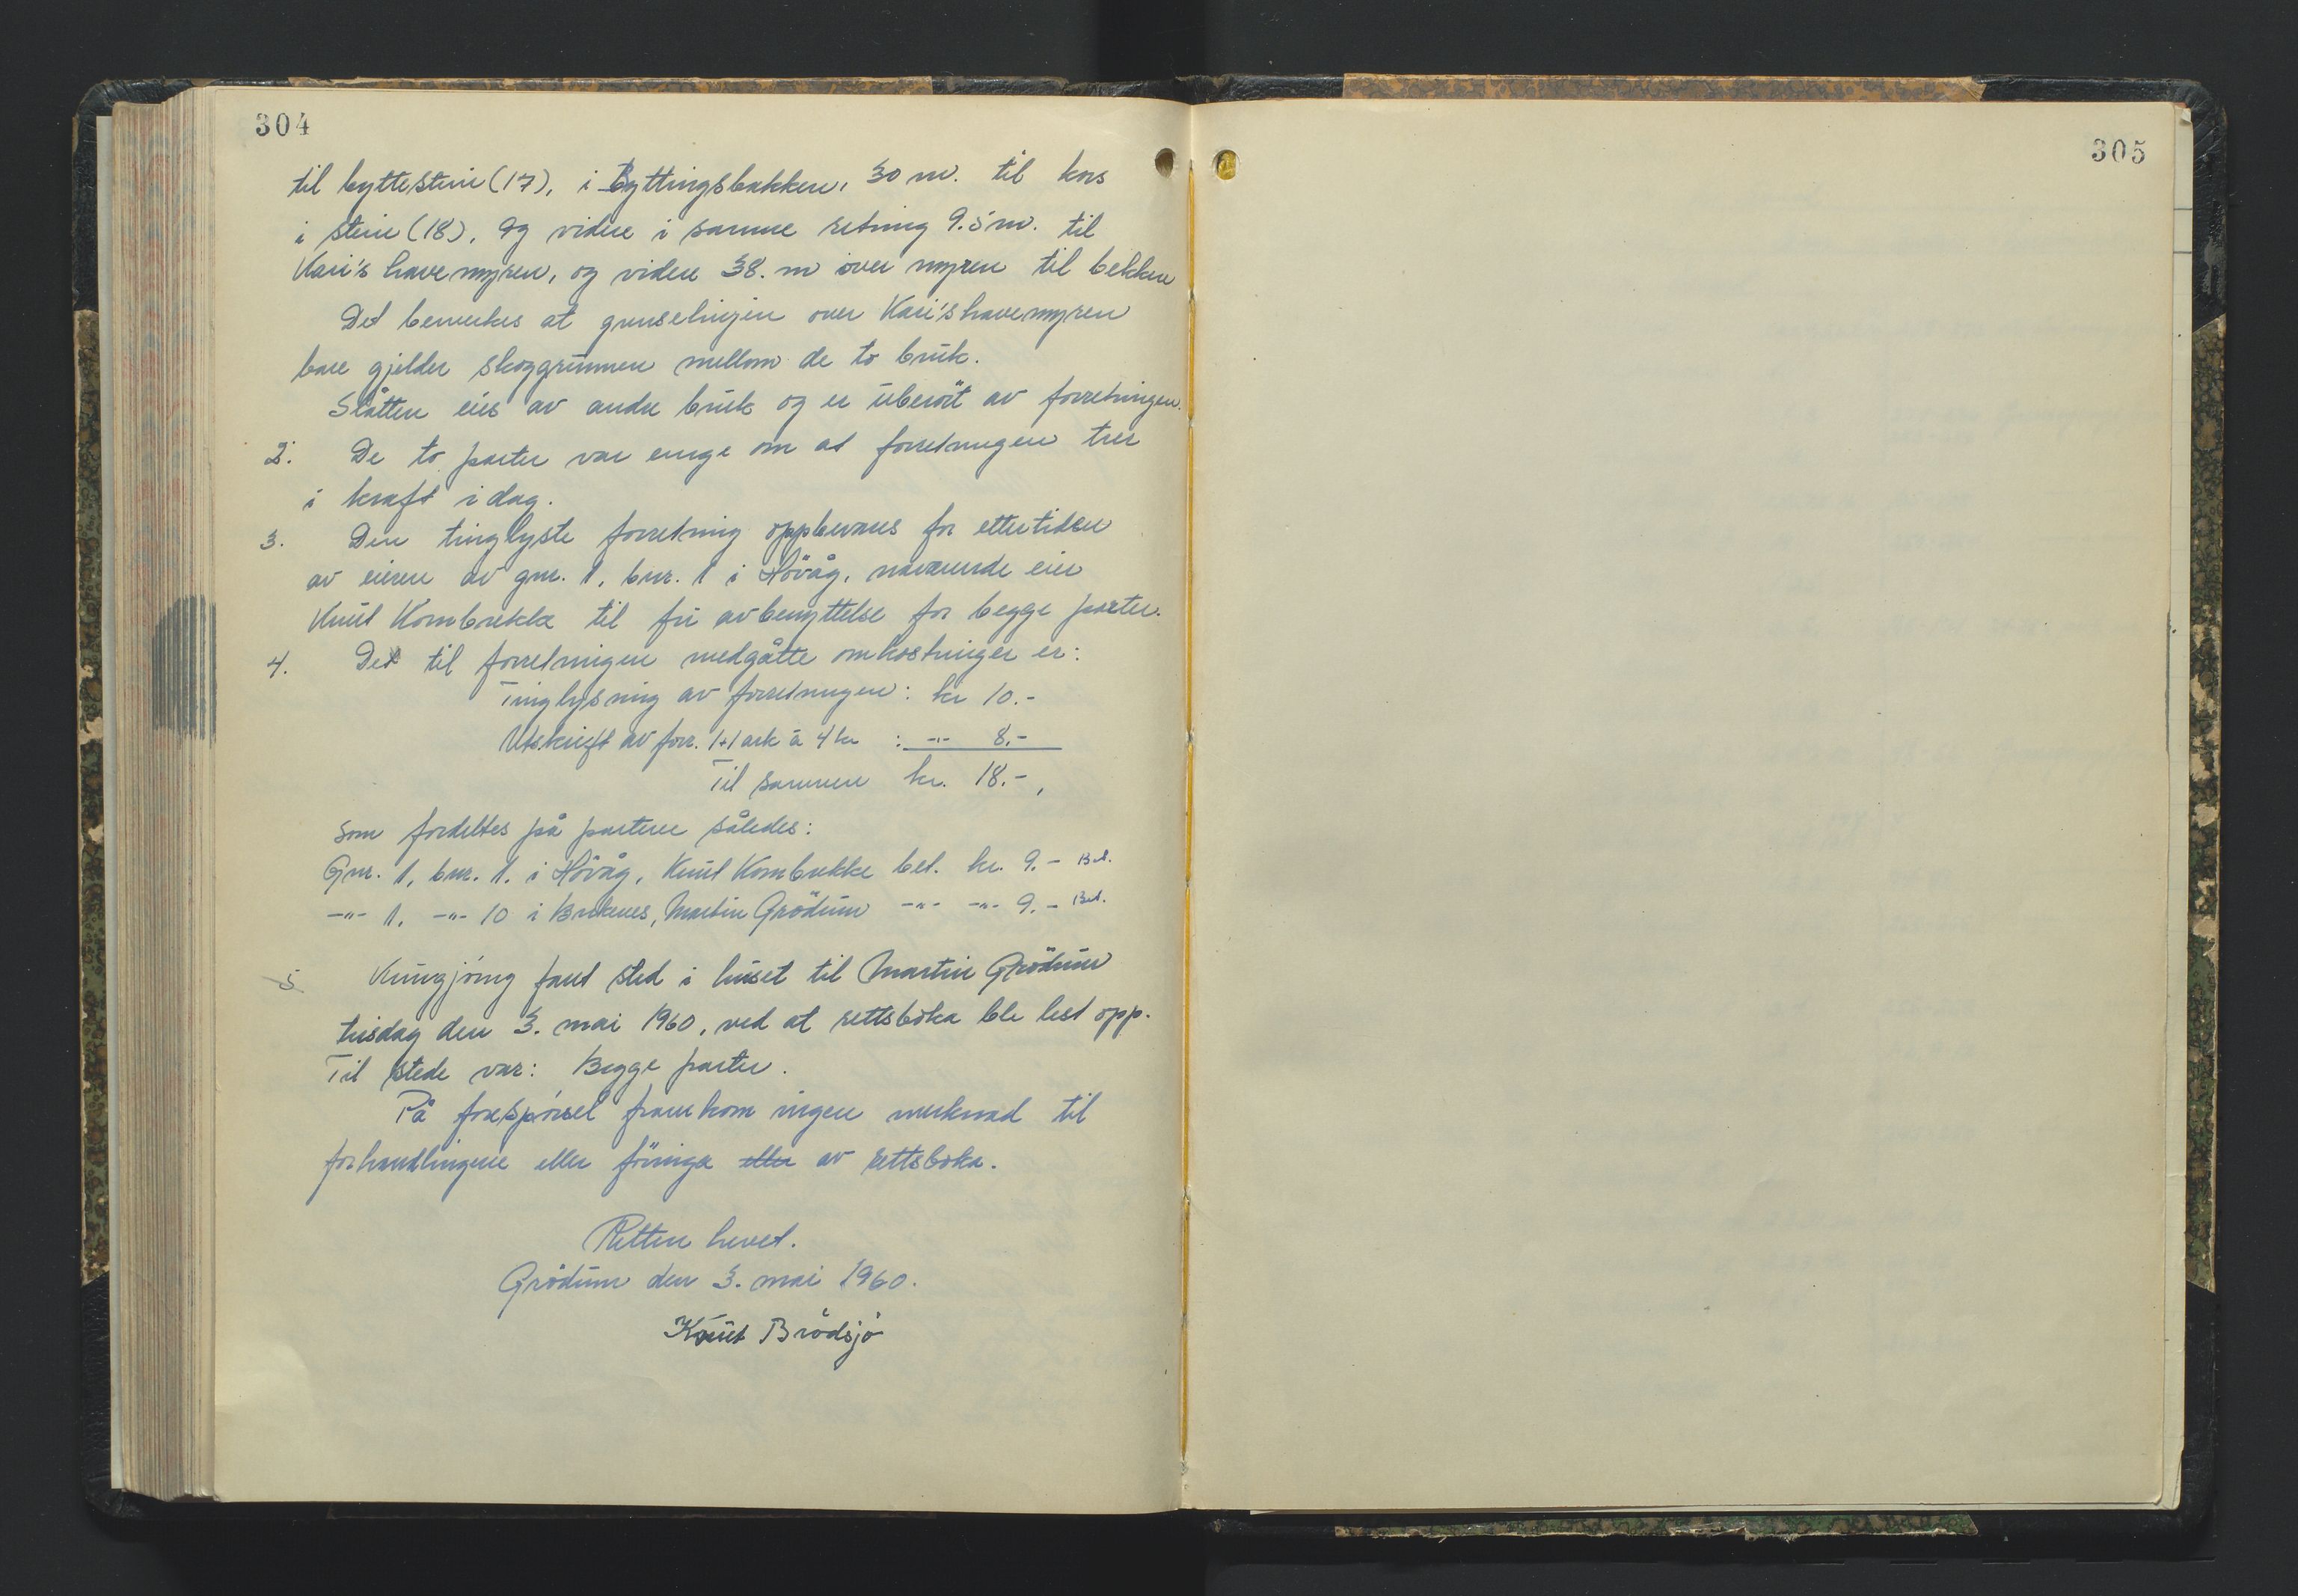 304
til byttestein (17), i Byttingsbakken, 30 m. til kors
i stein (18), og videre i samme retning 9.5 m. til
Kari's havemyren, og videre 38. m over myren til bekken
Det bemerkes at grenselinjen over Kari's havemyren
bare gjelder skoggrunnen mellom de to bruk.
Slåtten eies av andre bruk og er uberört av forretningen.
2. De to parter var enige om at forretningen trer
i kraft idag.
3. Den tinglyste forretning oppbevares for ettertiden
av eieren av gnr. 1, bnr. 1 i Hövåg, nåværende eier
Knut Kornbrekke til fri avbenyttelse for begge parter.
4. Det til forretningen medgåtte omkostninger er:
Tinglysning av forretningen: kr 10.-
Utskrift av forr. 1+1 ark à 4 kr : -"- 8.-
Til sammen kr. 18.-,
som fordeltes på partene således:
Gnr. 1, bnr. 1. i Hövåg, Knut Kornbrekke bet. kr. 9.- Bet.
-"- 1. -"- 10 i Birkenes, Martin Grödum -"- -"- 9.- Bet.
5 Kungjöring fant sted i huset til Martin Grödum
tirsdag den 3. mai 1960, ved at rettsboka ble lest opp.
Til stede var: Begge parter.
På forespörsel framkom ingen merknad til
forhandlingene eller föringa eller av rettsboka.
Retten hevet.
Grödum den 3. mai 1960.
Knut Brödsjö
305